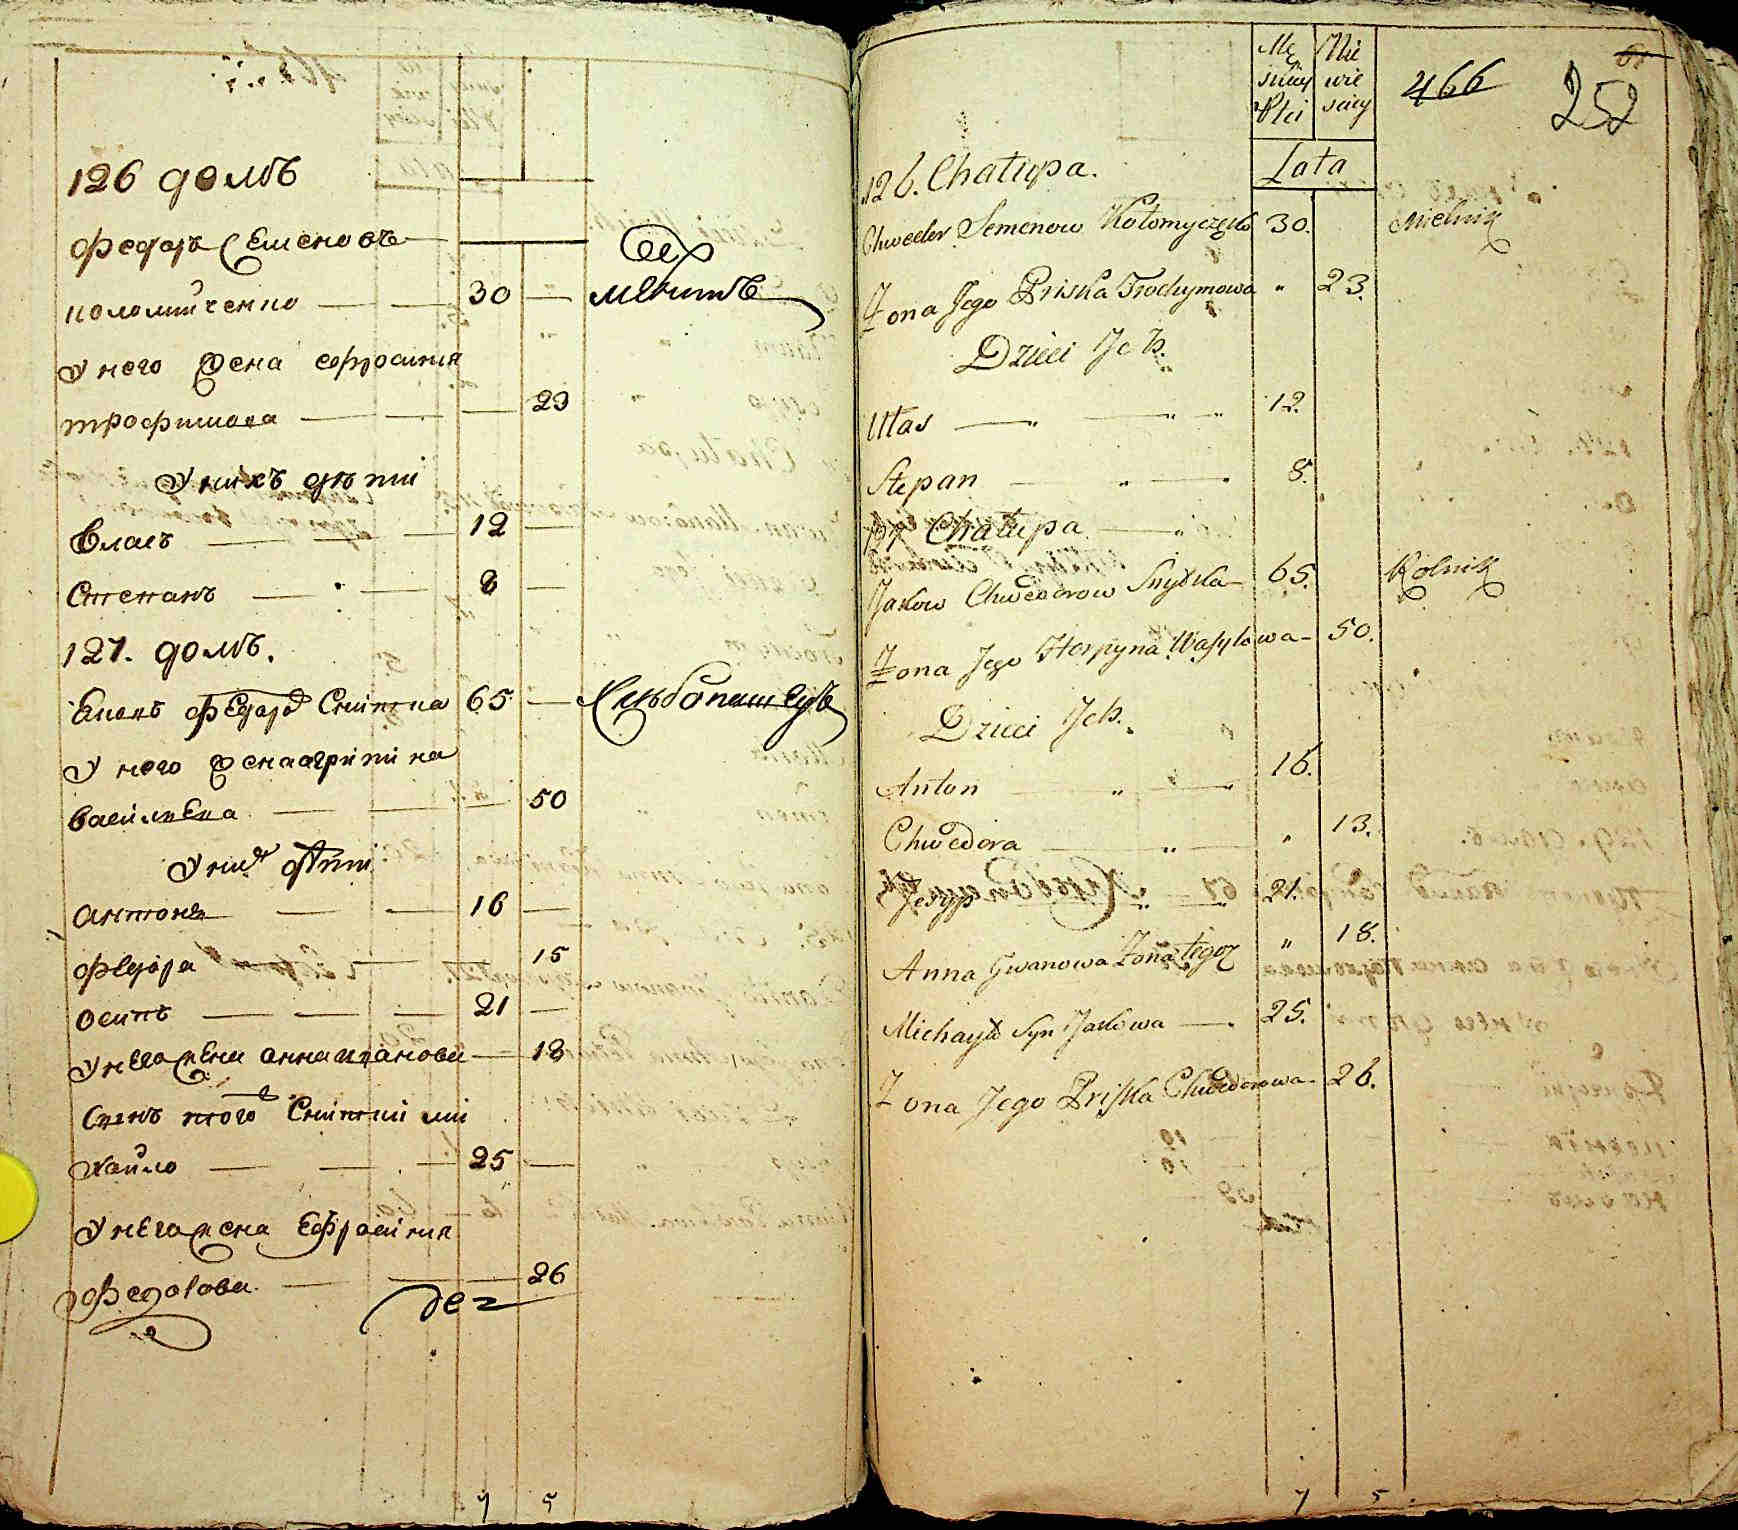 126 домъ
Федоръ Семеновъ
коломийченко — — 30 — мельникъ
У него жена ефросиния
трофимова — — — 23
У нихъ дѣти
Власъ — — — 12 —
Степанъ — — 8 —
127. домъ.
Яковъ Федоровъ Снитка 65 — Хлѣбопашецъ
У него жена агрипина
василиева — — — 50
У нихъ дѣти
антонъ — — 16 —
Федора — — — 15
осипъ — — — 21 —
У него жена анна иванова — 18
Сынъ того Снитки ми
хайло — — — 25 —
У него жена Ефросиния
Федорова — — — 26
7 5
Mę Nie
skiey wie
Płci sciey
Lata
466
252
126. Chałupa.
Chwedor Semenow Kołomyczęko 30. Mielnik
Żona Jego Priska Trochymowa " 23.
Dzieci Jch.
Ułas — " — " 12.
Stepan — " — 8.
127 Chałupa — "
Jakow Chwedorow Snytka — 65. Rolnik
Żona Jego Horpyna Wasylowa — 50.
Dzieci Jch.
Anton — " — 16.
Chwedora — " — " 13.
Josyp — " — 21.
Anna Jwanowa Żona tegoż " 18.
Michayło Syn Jakowa — 25.
Żona Jego Priska Chwedorowa — 26.
7 5